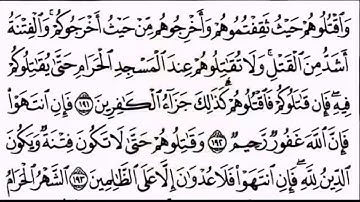 وَٱقْتُلُوهُمْ حَيْثُ ثَقِفْتُمُوهُمْ وَأَخْرِجُوهُم مِّنْ حَيْثُ أَخْرَجُوكُمْ ۚ وَٱلْفِتْنَةُ
أَشَدُّ مِنَ ٱلْقَتْلِ ۚ وَلَا تُقَٰتِلُوهُمْ عِندَ ٱلْمَسْجِدِ ٱلْحَرَامِ حَتَّىٰ يُقَٰتِلُوكُمْ
فِيهِ ۖ فَإِن قَٰتَلُوكُمْ فَٱقْتُلُوهُمْ ۗ كَذَٰلِكَ جَزَآءُ ٱلْكَٰفِرِينَ ١٩١ فَإِنِ ٱنتَهَوْا۟
فَإِنَّ ٱللَّهَ غَفُورٌ رَّحِيمٌ ١٩٢ وَقَٰتِلُوهُمْ حَتَّىٰ لَا تَكُونَ فِتْنَةٌ وَيَكُونَ
ٱلدِّينُ لِلَّهِ ۖ فَإِنِ ٱنتَهَوْا۟ فَلَا عُدْوَٰنَ إِلَّا عَلَى ٱلظَّٰلِمِينَ ١٩٣ ٱلشَّهْرُ ٱلْحَرَامُ